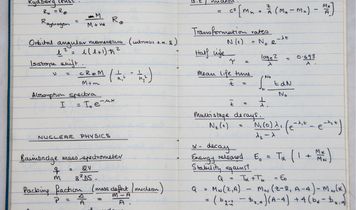 Rydberg const.
R∞ = R∞
R hydrogen = ∞M / M+me R∞
Orbital angular momentum (
l² = l(l+1)ħ²
Isotope shift
ν = cR∞M / M+m ( 1/n₁² - 1/n₂² )
Absorption spectra
I = I₀ e^-μx
NUCLEAR PHYSICS
Bainbridge mass spectrometer
Q/M =
Packing fraction (mass defect/nucleon)
P = Δ/A = M-A / A
B.E / nucleon
= c² [ Mn + Z/A (MH - Mn) - MA/A ]
Transformation rates
N(t) = N₀ e^-λt
Half life
τ = loge2 / λ = 0.693 / λ
Mean life time
t̄ = ∫ t dN / N₀
t̄ = 1/λ
Multistage decays
N₂(t) = N₁(0) λ₁ / λ₂-λ₁ ( e^-λ₁t - e^-λ₂t )
α - decay
Energy released E₀ = Tα ( 1 + Mα/MN )
Stability against
Q = Tα + TN = E₀
Q = MN(Z,A) - MN(Z-2,A-4) - MN(α)